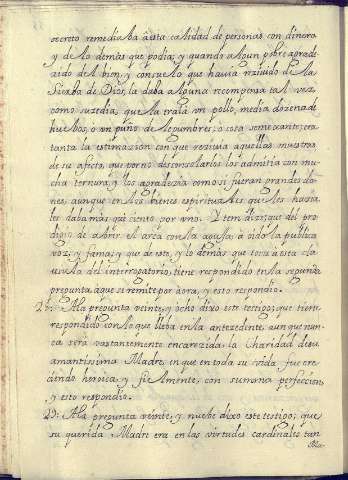 secreto remediaba a esta calidad de personas con dinero
y de lo demàs que podia; y quando algun pobre agrade
cido del bien, y consuelo que havia rezivido de la
Sierba de Dios, la daba alguna recompensa tal vez
como suzedia, que la traìa un pollo, media dozena de
huebos, o un puño de legumbres, o cosa semexante; era
tanta la estimazion con que rezivia aquellas muestras
de su afecto, que por no desconsolarlos los admitia con mu
cha ternura, y los agradezia como si fueran grandes do
nes, aunque en los bienes espirituales que les hazia
les daba màs que ciento por uno. Y tem dize que del pro
digio de abrir el arca con la aguja à oido la publica
voz, y fama; y que de esto, y lo demàs que toca à esta cla
usula del interrogatorio, tiene respondido en la segunda
pregunta, a que se remite por àora, y esto respondio.
28: A la pregunta veinte, y ocho dixo este testigo; que tiene
respondido con lo que lleba en la antezedente, aunque nun
ca serà vastantemente encarezida la Charidad de su
amantissima Madre en que en toda su vida fue cre
ciendo heroica, y fielmente, con summa perfeccion,
y esto respondio.
29: A la pregunta veinte, y nuebe dixo este testigo; que
su querida Madre era en las virtudes cardinales tan